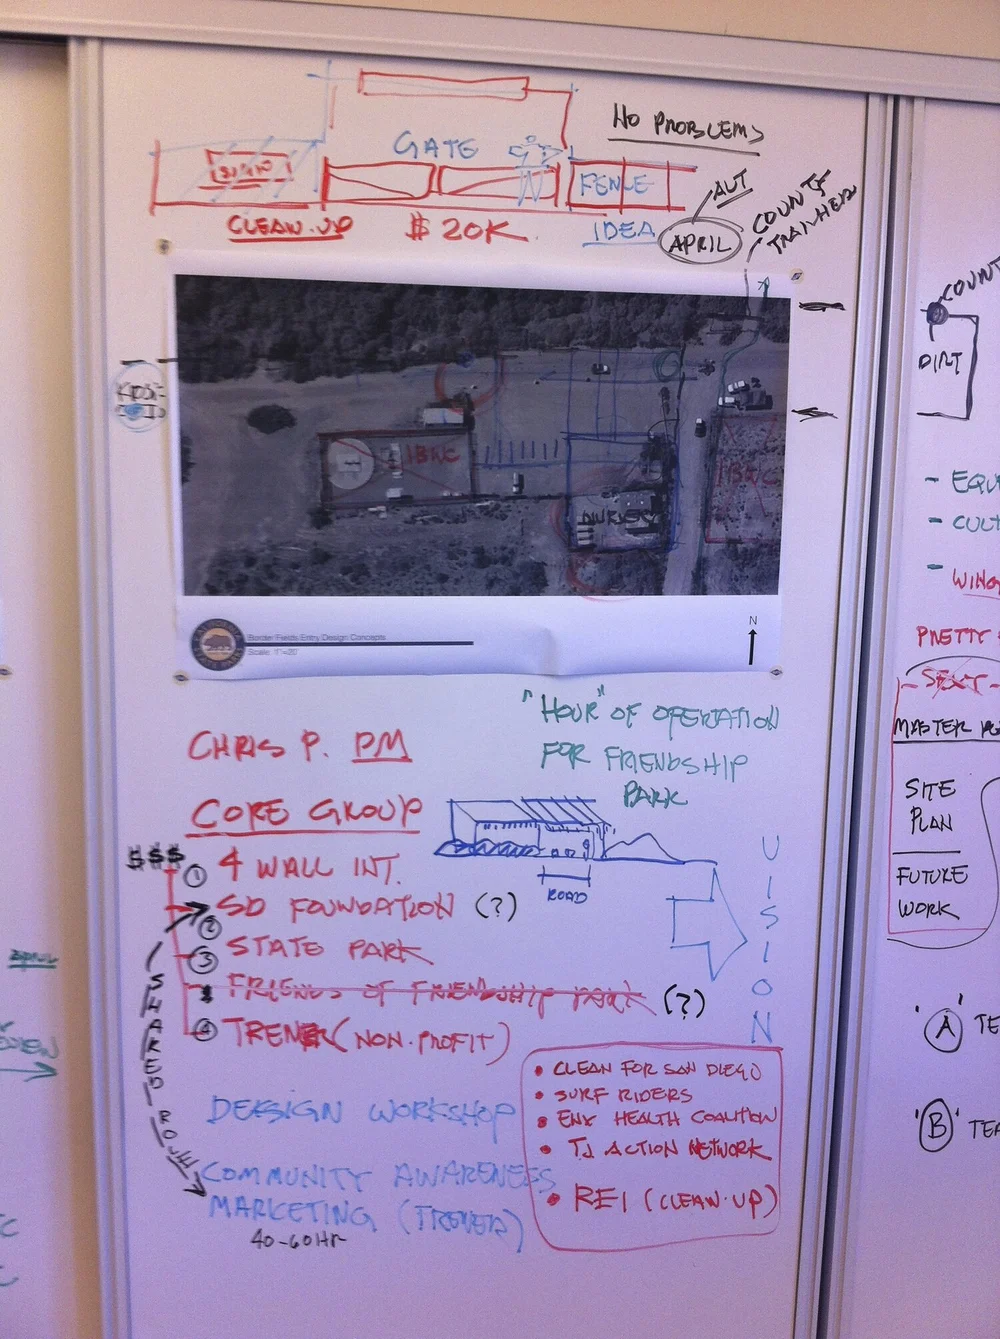 NO PROBLEMS
GATE
SIGN
FENCE
CLEAN-UP
$ 20K
IDEA
APRIL
COUNTY
TRAILHEAD
KIOSK
IBWC
NURSERY
IBWC
Border Fields Entry Design Concepts
Scale: 1"=20'
N
CHRIS P. PM
"HOUR" OF OPERATION
FOR FRIENDSHIP
PARK
CORE GROUP
$$$
① 4 WALL INT.
② SD FOUNDATION (?)
③ STATE PARK
FRIENDS OF FRIENDSHIP PARK (?)
④ (NON-PROFIT)
ROAD
VISION
SHARED
DESIGN WORKSHOP
COMMUNITY AWARENESS
MARKETING
40-60HR
• CLEAN FOR SAN DIEGO
• SURF RIDERS
• ENV HEALTH COALITION
• TJ ACTION NETWORK
• REI (CLEAN-UP)
COUNT
DIRT
- EQU
- CULT
- WING
PRETTY
SEXY
MASTER
SITE
PLAN
FUTURE
WORK
'A' TE
'B' TEA
APRIL